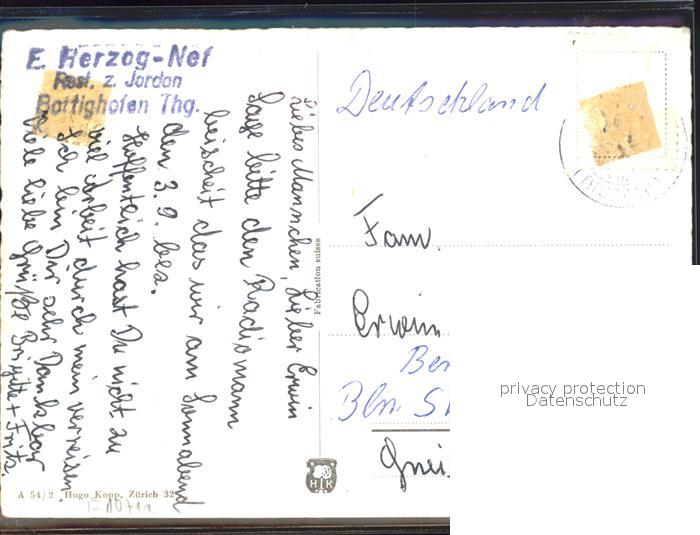 E. Herzog-Nef
Rest. z. Jordan
Bottighofen Thg.
Liebes Mannchen, Lieber Erwin
Sage bitte den Radiomann
bescheit das wir am Sonnabend
den 3. 9. bes.
Hoffentlich hast Du nicht zu
viel Arbeit durch mein verreisen
Ich bin Dir sehr Dankbar
Viele liebe Grüße Brigitte + Fritz.
Fabrication suisse
HK
A 54/2 Hugo Kopp, Zürich 32
Deutschland
Fam.
Erwin
Ber
Bln. St
Gnei
privacy protection
Datenschutz